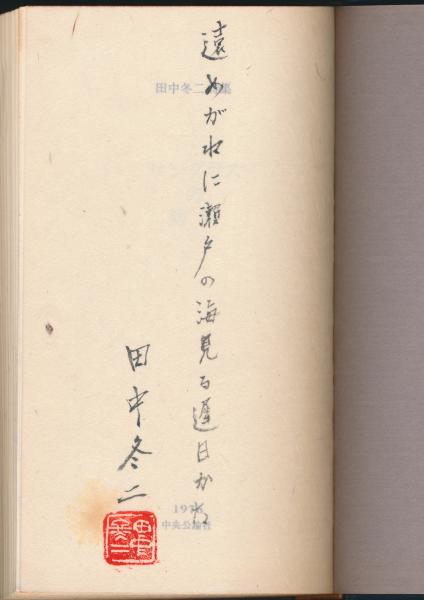 遠めがねに瀬戸の海見る遅日かな
田中冬二
田中冬二
田中冬二詩集
中央公論社